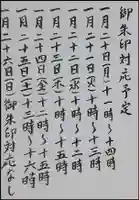 御朱印対応予定
一月二十日(月)十一時〜十四時
一月二十二日(水)十時〜十二時
一月二十三日(木)十時〜十五時
一月二十四日(金)十二時〜十五時
一月二十五日(土)十三時〜十六時
一月二十六日(日)御朱印対応なし